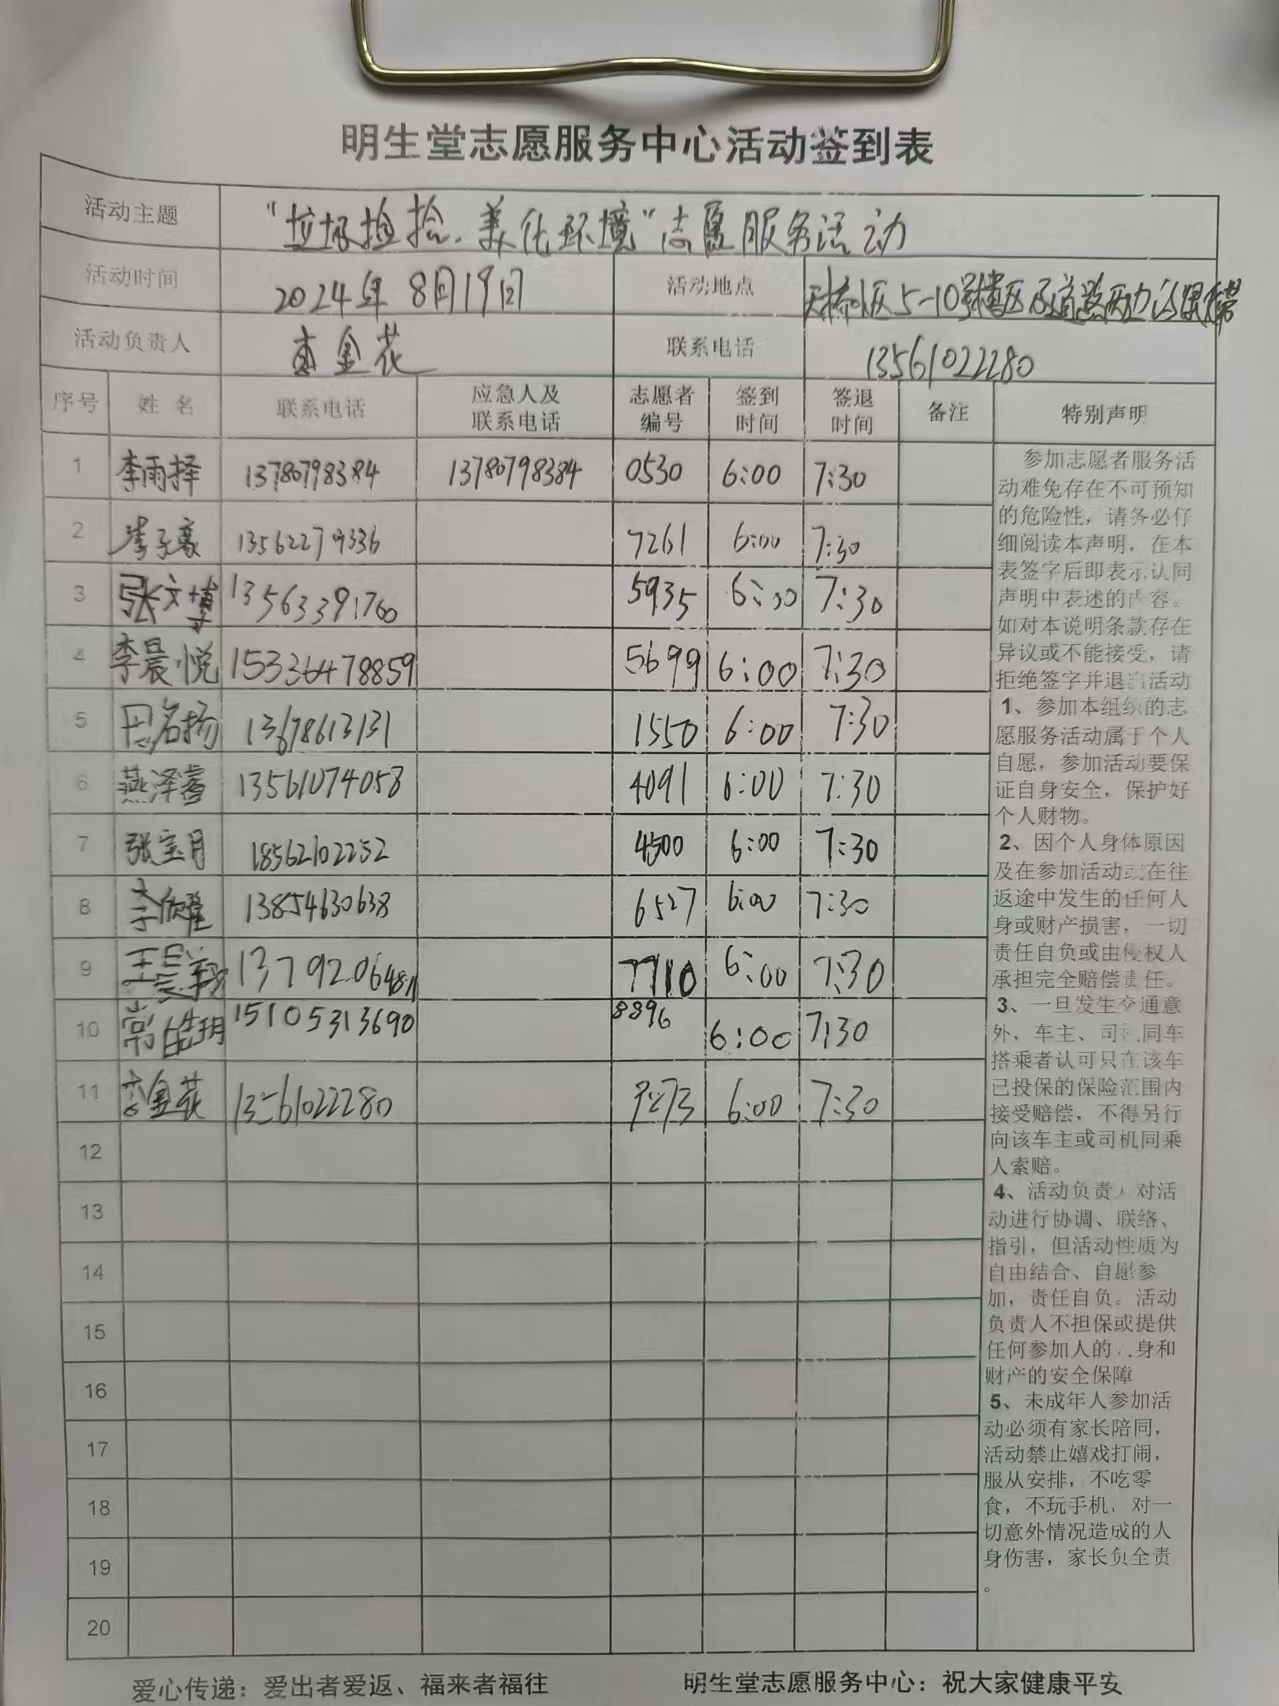 明生堂志愿服务中心活动签到表
活动主题 “垃圾捡拾、美化环境”志愿服务活动
活动时间 2024年8月19日 活动地点 5-10号楼
活动负责人 李金花 联系电话 13561022280
序号 姓名 联系电话 应急人及联系电话 志愿者编号 签到时间 签退时间 备注 特别声明
1 李雨择 13780798384 13780798384 0530 6:00 7:30
2 李子豪 13562279336 7261 6:00 7:30
3 张文博 13563391760 5935 6:00 7:30
4 李晨悦 15336478859 5699 6:00 7:30
5 田名扬 13678613131 1550 6:00 7:30
6 燕泽睿 13561074058 4091 6:00 7:30
7 张宝月 18562102252 4500 6:00 7:30
8 李欣 13854630638 6527 6:00 7:30
9 王 7710 6:00 7:30
10 常皓玥 15105313690 8896 6:00 7:30
11 李金花 13561022280 6:00 7:30
12
13
14
15
16
17
18
19
20
参加志愿者服务活
动难免存在不可预知
的危险性，请务必仔
细阅读本声明，在本
表签字后即表示认同
声明中表述的内容。
如对本说明条款存在
异议或不能接受，请
拒绝签字并退出活动
1、参加本组织的志
愿服务活动属于个人
自愿，参加活动要保
证自身安全，保护好
个人财物。
2、因个人身体原因
及在参加活动或在往
返途中发生的任何人
身或财产损害，一切
责任自负或由侵权人
承担完全赔偿责任。
3、一旦发生交通意
外，车主、司机同车
搭乘者认可只在该车
已投保的保险范围内
接受赔偿，不得另行
向该车主或司机同乘
人索赔。
4、活动负责人对活
动进行协调、联络、
指引，但活动性质为
自由结合、自愿参
加，责任自负。活动
负责人不担保或提供
任何参加人的人身和
财产的安全保障
5、未成年人参加活
动必须有家长陪同，
活动禁止嬉戏打闹，
服从安排，不吃零
食，不玩手机，对一
切意外情况造成的人
身伤害，家长负全责
。
爱心传递：爱出者爱返、福来者福往 明生堂志愿服务中心：祝大家健康平安